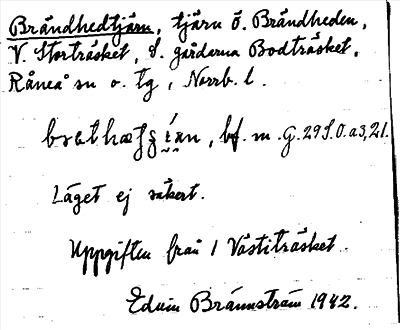 Brändhedtjärn, tjärn Ö. Brändheden,
V. Storträsket, S. gårdarna Bodträsket,
Råneå sn o. tg, Norrb. l.
bf. m. G. 29 S. O. a 3, 21.
Läget ej säkert.
Uppgiften från 1 Västiträsket.
Edvin Brännström 1942.